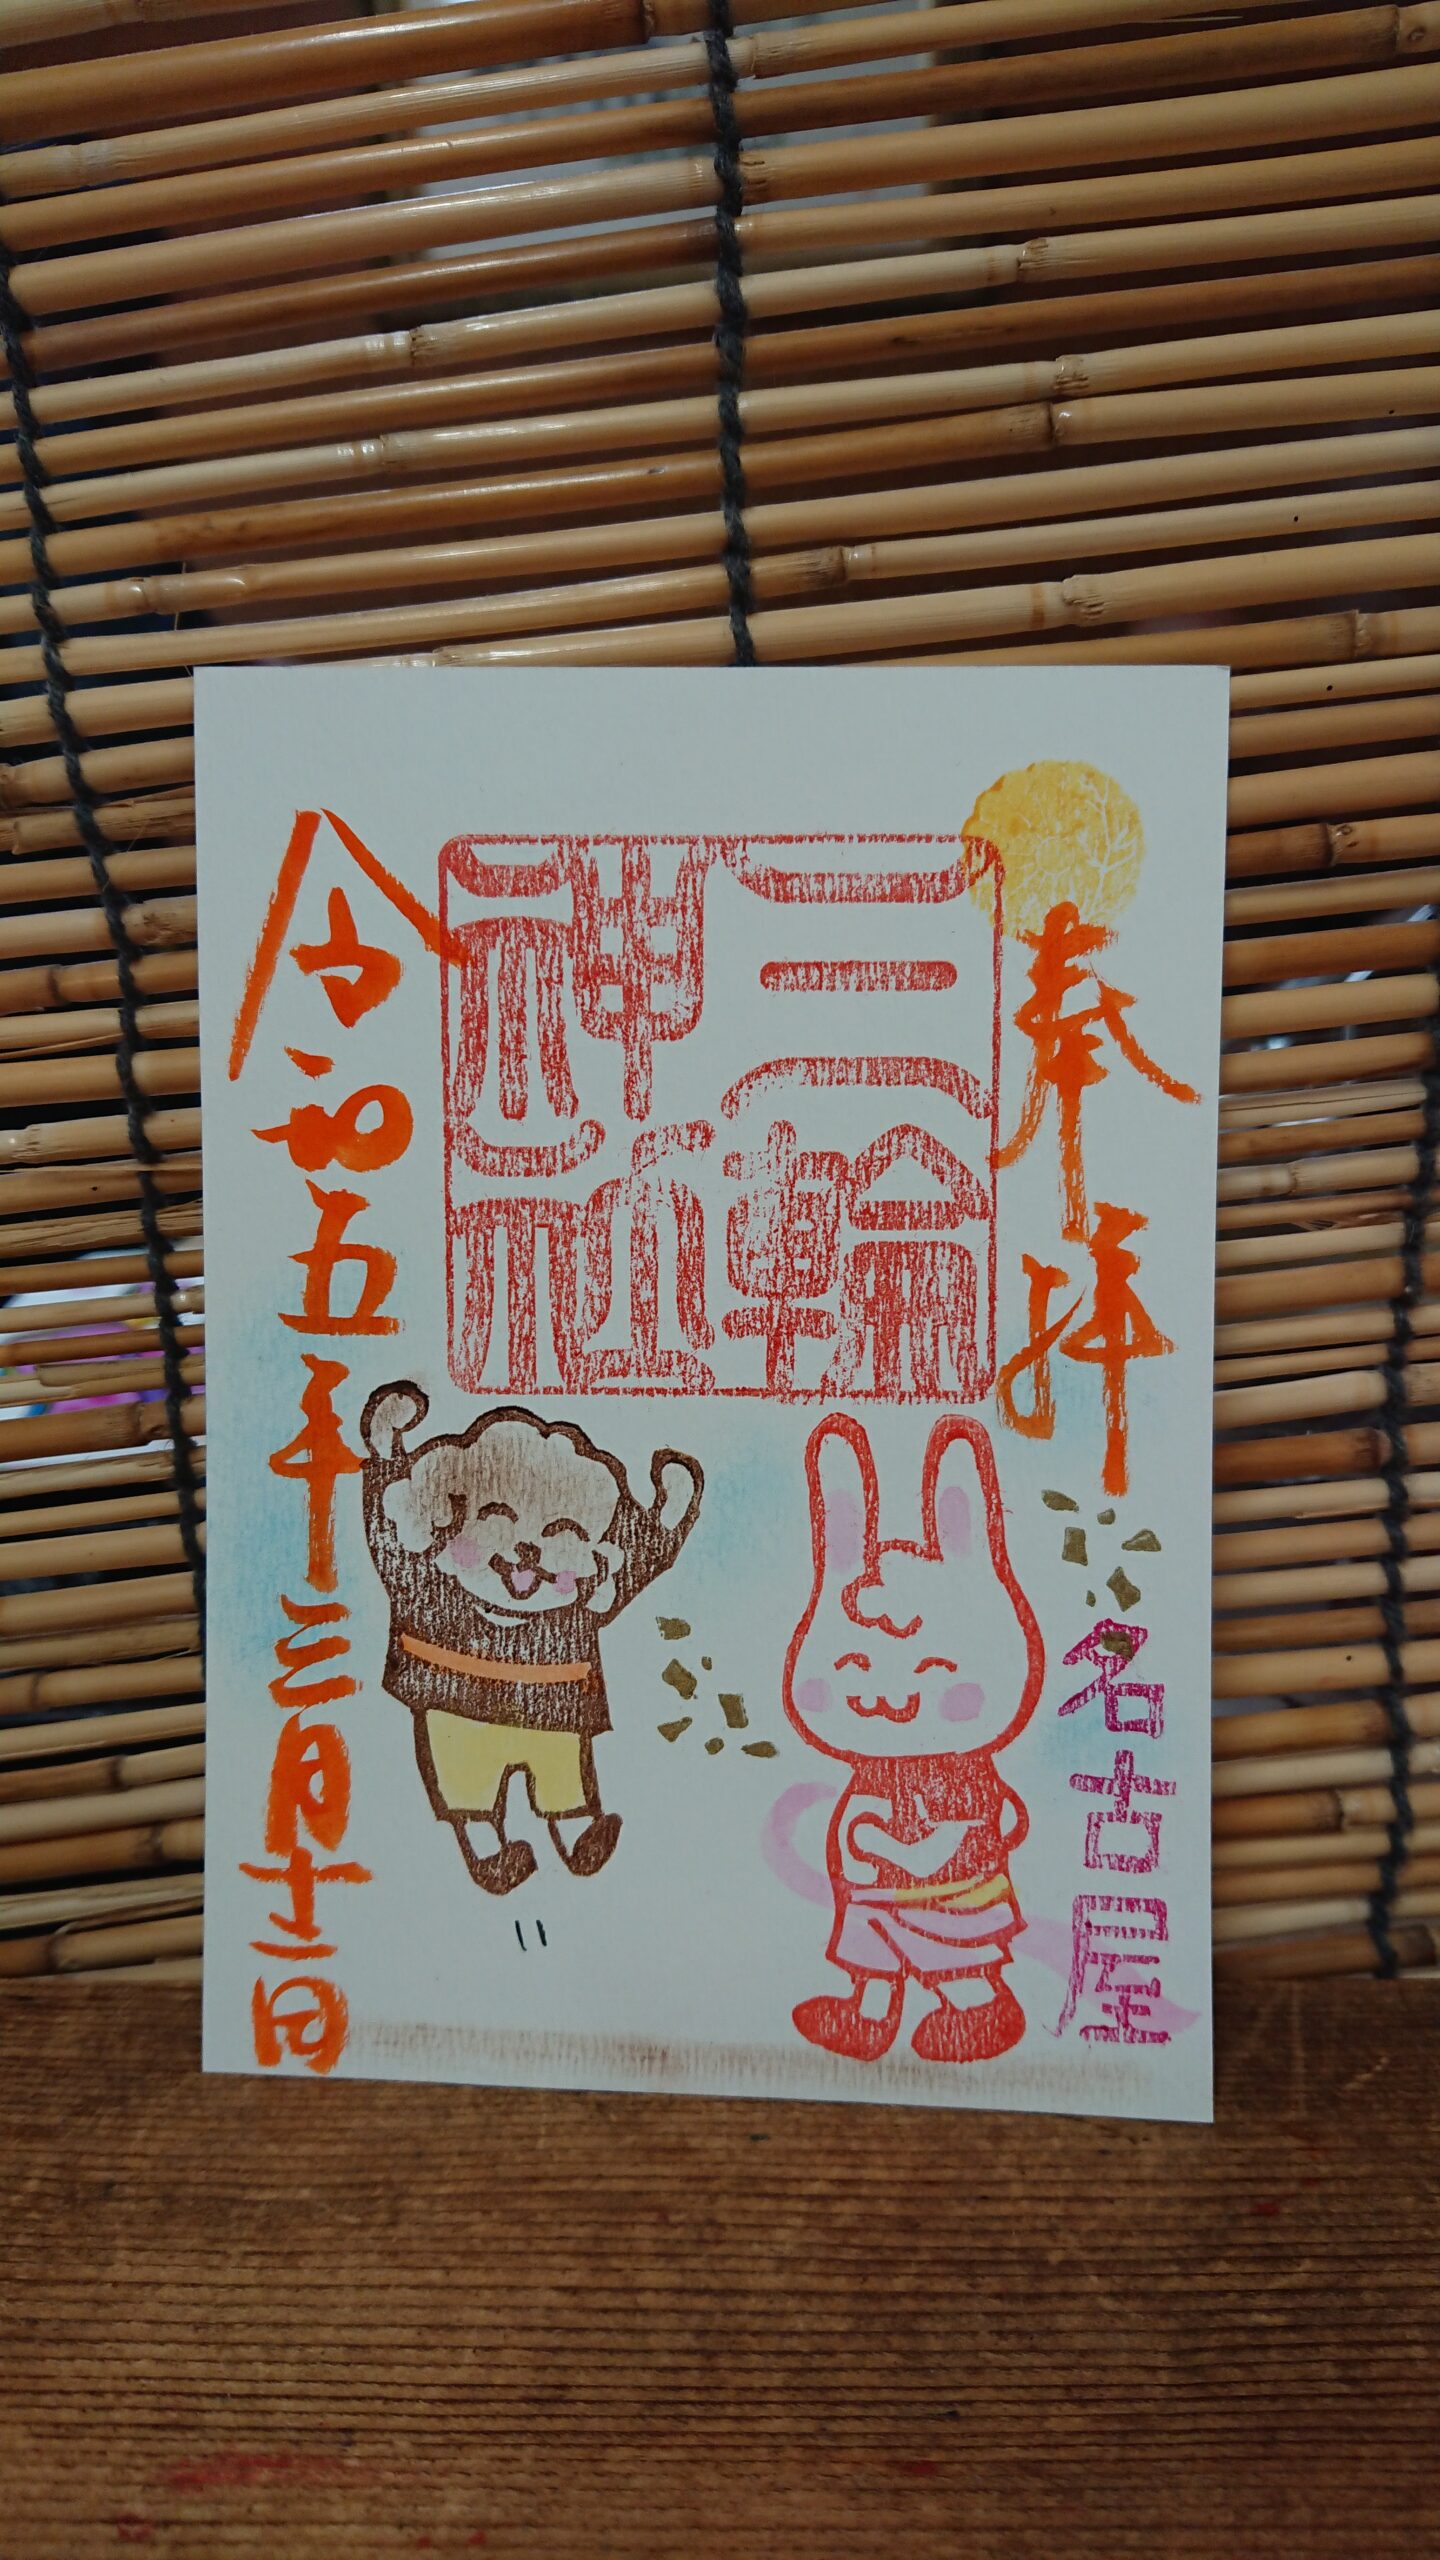 奉拝
名古屋
三輪
神社
令和五年三月十二日